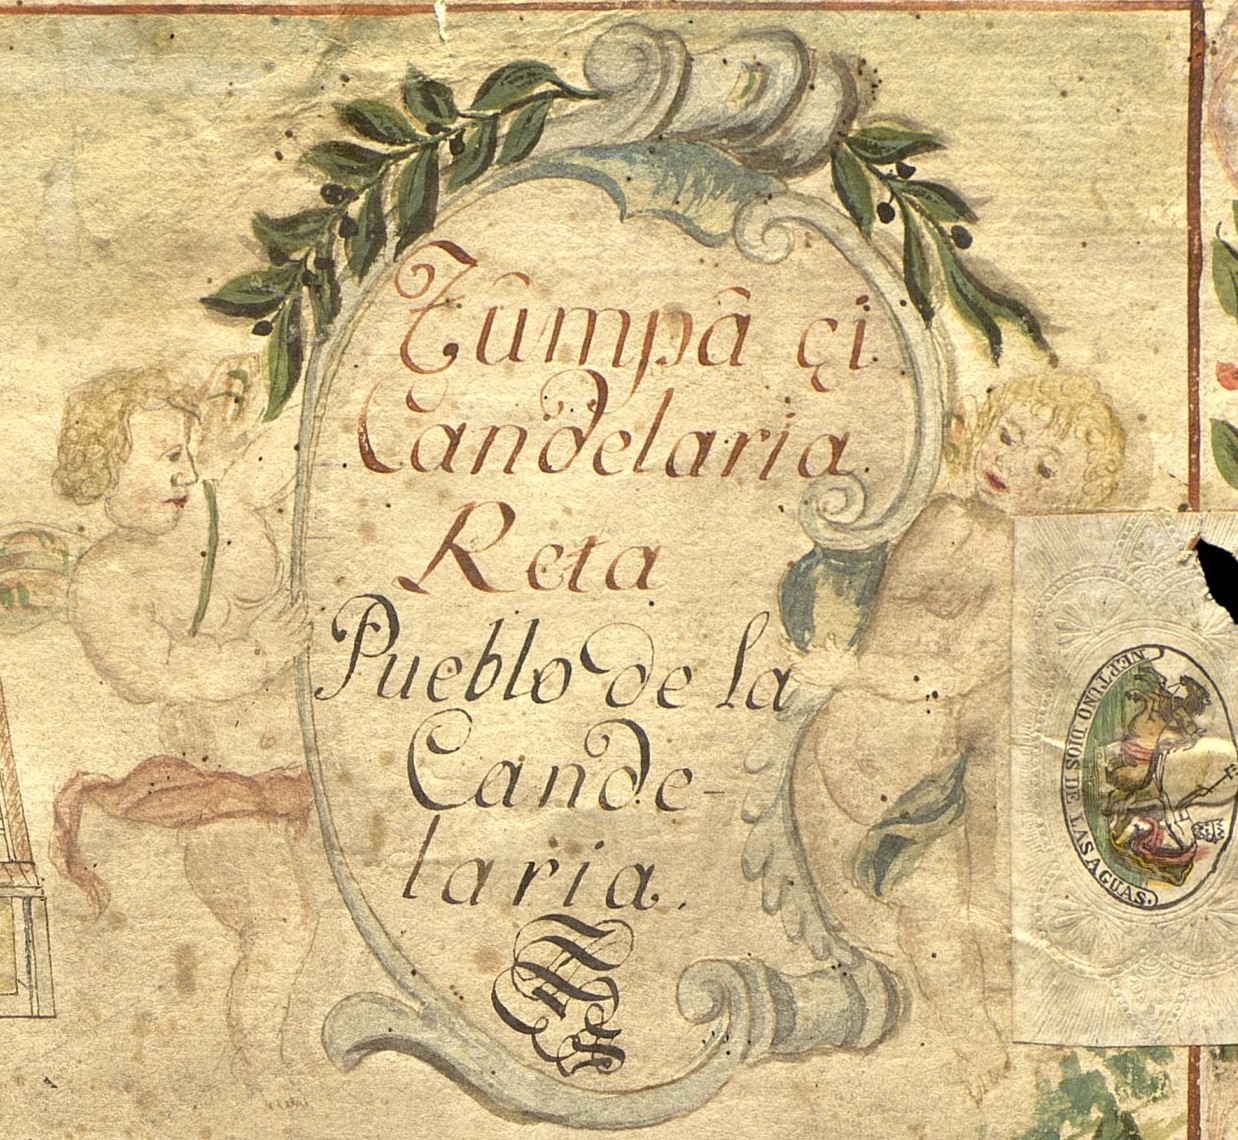 Tûmpâ çi
Candelaria
Reta
Pueblo de la
Cande-
laria.
NEPTUNO DIOS DE LVS AGUAS.